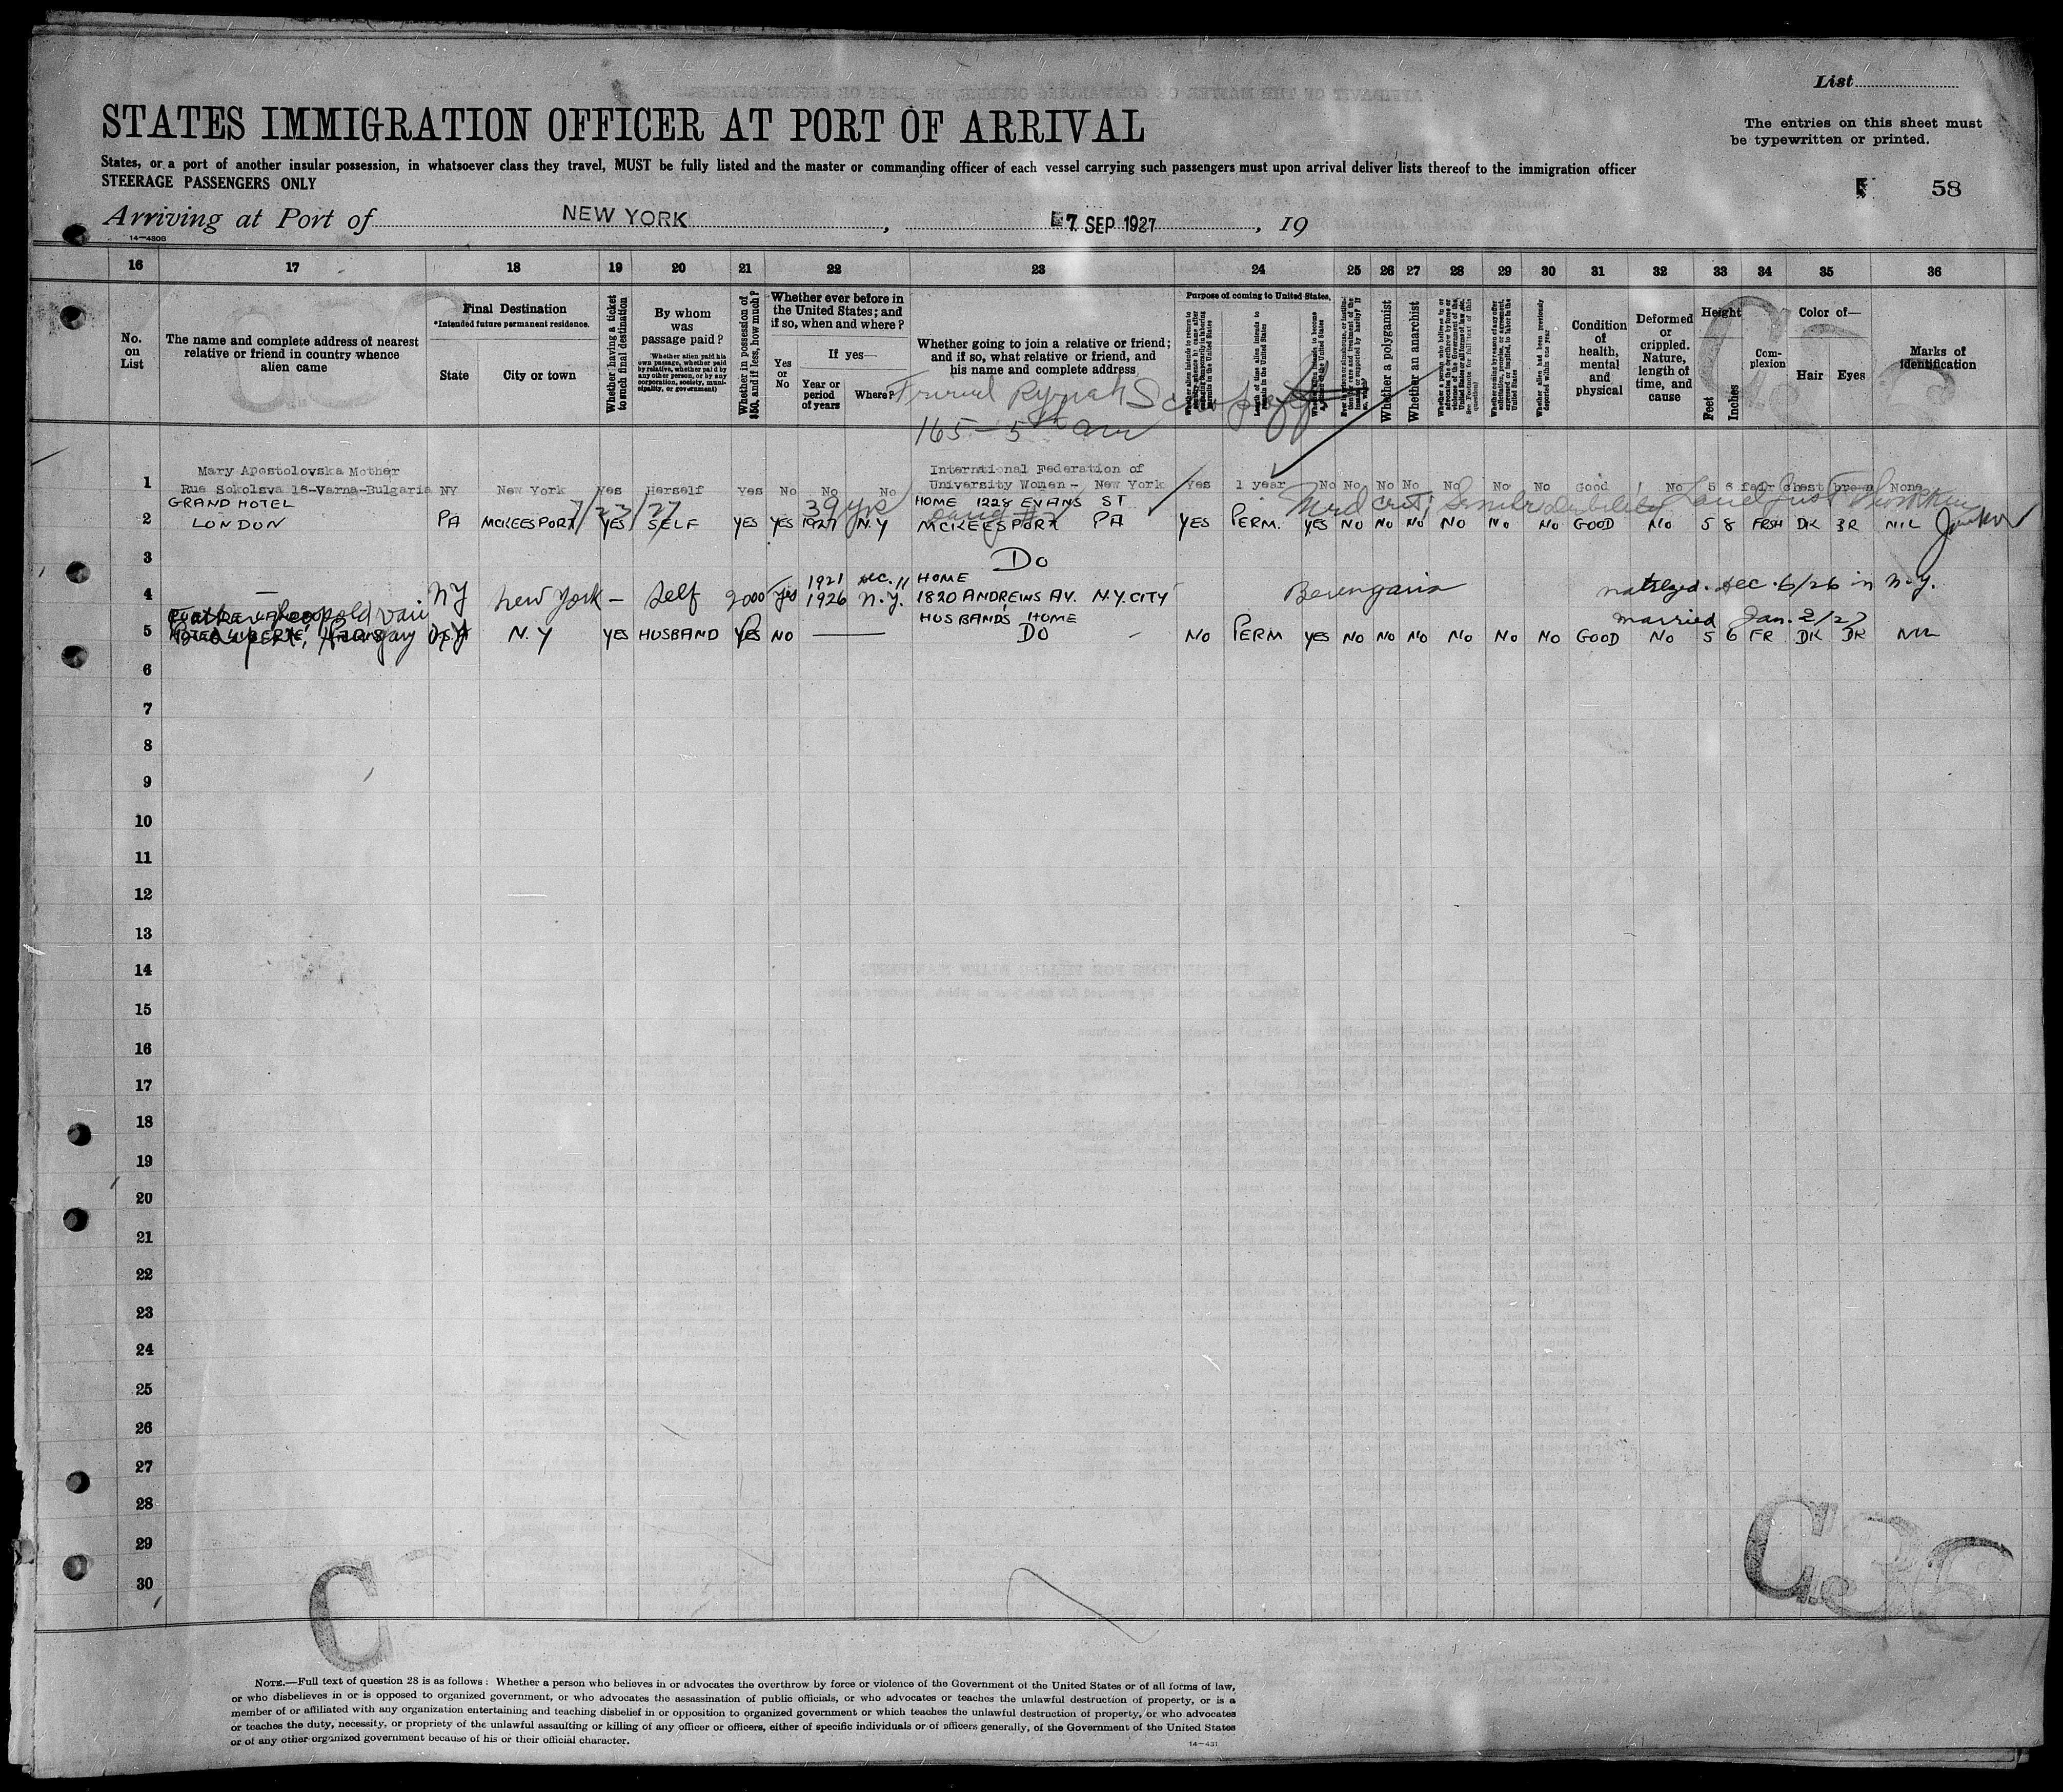 List
STATES IMMIGRATION OFFICER AT PORT OF ARRIVAL
The entries on this sheet must
be typewritten or printed.
States, or a port of another insular possession, in whatsoever class they travel, MUST be fully listed and the master or commanding officer of each vessel carrying such passengers must upon arrival deliver lists thereof to the immigration officer
STEERAGE PASSENGERS ONLY
58
Arriving at Port of NEW YORK, 7 SEP 1927, 19
14—4308
16 17 18 19 20 21 22 23 24 25 26 27 28 29 30 31 32 33 34 35 36
No. on List
The name and complete address of nearest relative or friend in country whence alien came
Final Destination
*Intended future permanent residence.
State
City or town
Whether having a ticket to such final destination
By whom was passage paid?
(Whether alien paid his own passage, whether paid by relative, whether paid by any other person, or by any corporation, society, municipality, or government)
Whether in possession of $50, and if less, how much?
Whether ever before in the United States; and if so, when and where?
Yes or No
If yes—
Year or period of years
Where?
Whether going to join a relative or friend; and if so, what relative or friend, and his name and complete address
Purpose of coming to United States.
Length of time alien intends to remain in the United States
Whether a polygamist
Whether an anarchist
Whether alien had been previously deported within one year
Condition of health, mental and physical
Deformed or crippled. Nature, length of time, and cause
Height
Feet
Inches
Complexion
Color of—
Hair
Eyes
Marks of identification
165 - 5th ave
1 Mary Apostolovska Mother International Federation of
Rue Sokolsva 15-Varna-Bulgaria NY New York Yes Herself Yes No No No University Women - New York Yes 1 year No No No No No No No Good No 5 6 fair chest brown None
7/23/27 39 yrs
Med cert; Senile debility
2 GRAND HOTEL HOME 1228 EVANS ST
LONDON PA MCKEESPORT YES SELF YES YES 1927 N.Y MCKEESPORT PA YES PERM. YES NO NO NO NO NO NO GOOD NO 5 8 FRSH DK BR NIL
3 Do
4 — NY New York — Self 2000 Yes 1921 1926 N.Y. HOME
1820 ANDREWS AV. N.Y. CITY Berengaria natlzed. Dec. 6/26 in N.Y.
married Jan. 2/27
5 N.Y YES HUSBAND YES NO — HUSBANDS HOME
DO - NO PERM YES NO NO NO NO NO NO GOOD NO 5 6 FR DK DK NIL
6
7
8
9
10
11
12
13
14
15
16
17
18
19
20
21
22
23
24
25
26
27
28
29
30
NOTE.—Full text of question 28 is as follows: Whether a person who believes in or advocates the overthrow by force or violence of the Government of the United States or of all forms of law,
or who disbelieves in or is opposed to organized government, or who advocates the assassination of public officials, or who advocates or teaches the unlawful destruction of property, or is a
member of or affiliated with any organization entertaining and teaching disbelief in or opposition to organized government or which teaches the unlawful destruction of property, or who advocates
or teaches the duty, necessity, or propriety of the unlawful assaulting or killing of any officer or officers, either of specific individuals or of officers generally, of the Government of the United States
or of any other organized government because of his or their official character.
14—431